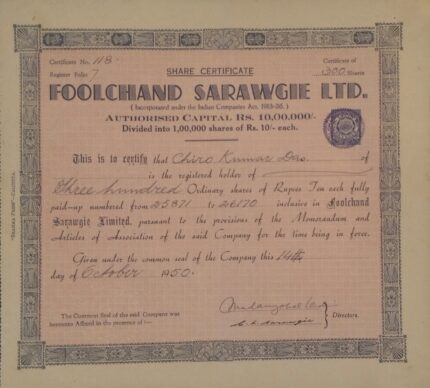 Certificate No. 118.
Certificate of
Register Folio 7
300 Shares
SHARE CERTIFICATE
FOOLCHAND SARAWGIE LTD.
( Incorporated under the Indian Companies Act, 1913-36. )
AUTHORISED CAPITAL RS. 10,00,000/-
Divided into 1,00,000 shares of Rs. 10/- each.
This is to certify that Chiro Kumar Das. of
is the registered holder of
Three hundred Ordinary shares of Rupees Ten each fully
paid-up numbered from 25871 to 26170 inclusive in Foolchand
Sarawgie Limited, pursuant to the provisions of the Memorandum and
Articles of Association of the said Company for the time being in force.
Given under the common seal of the Company this 14th
day of October 1950.
The Common Seal of the said Company was
hereunto Affixed in the presence of :—
Directors.